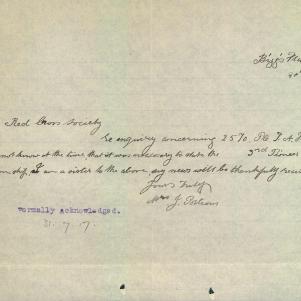 Red Cross Society
Re enquiry concerning 2570. Pte T. A.
not know at the time that it was necessary to state the 3rd Pioneer
am a sister to the above, any news will be thankfully
Yours truly
Mrs J.
Formally acknowledged.
31.7.17.